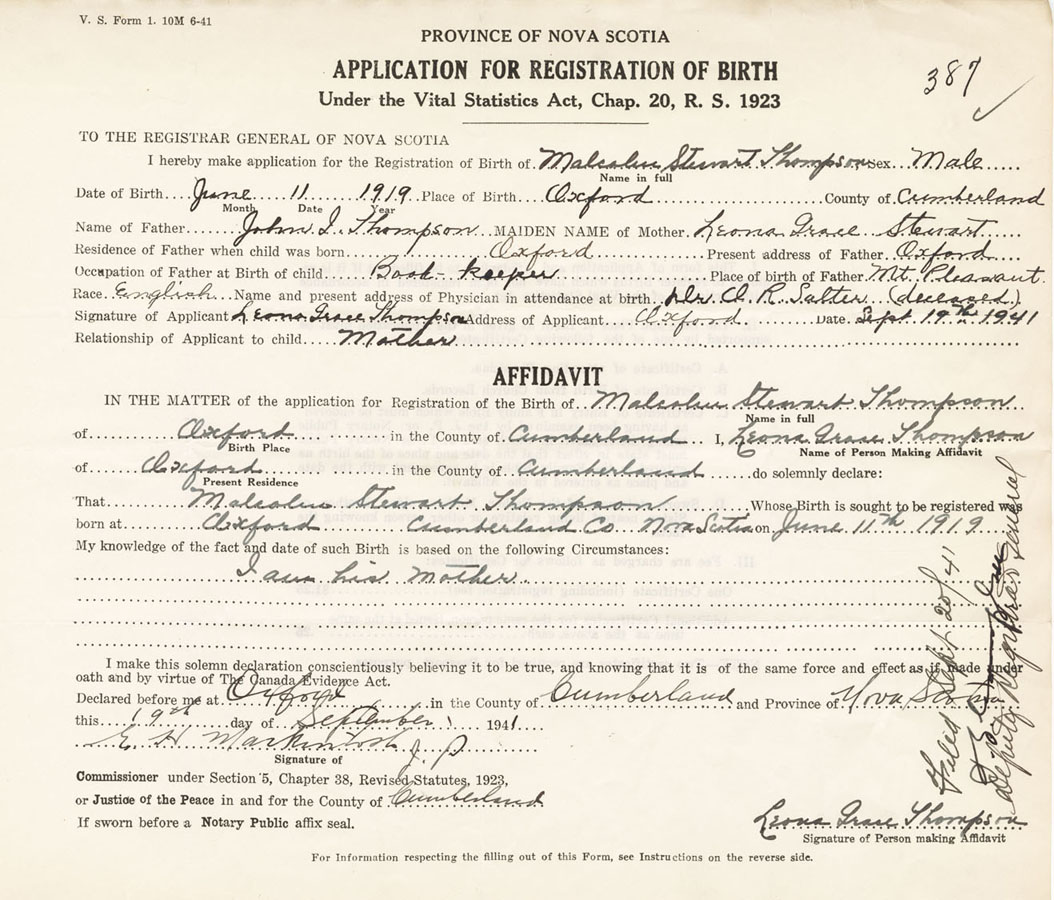 V. S. Form 1. 10M 6-41
PROVINCE OF NOVA SCOTIA
APPLICATION FOR REGISTRATION OF BIRTH
387
Under the Vital Statistics Act, Chap. 20, R. S. 1923
TO THE REGISTRAR GENERAL OF NOVA SCOTIA
I hereby make application for the Registration of Birth of. Malcolm Stewart Thompson, Sex... Male
Name in full
Date of Birth.... June 11 1919 Place of Birth.... Oxford County of Cumberland
Month Date Year
Name of Father....... John I. Thompson... MAIDEN NAME of Mother. Leona Grace Stewart
Residence of Father when child was born........ Oxford Present address of Father. Oxford
Occupation of Father at Birth of child.... Book-keeper Place of birth of Father. Mt. Pleasant.
Race. English...Name and present address of Physician in attendance at birth. Dr. C. R. Salter (deceased.)
Signature of Applicant Leona Grace Thompson Address of Applicant.... Oxford. Date. Sept. 19th 1941
Relationship of Applicant to child.... Mother
AFFIDAVIT
IN THE MATTER of the application for Registration of the Birth of.. Malcolm Stewart Thompson
Name in full
of........ Oxford........ in the County of. Cumberland I, Leona Grace Thompson
Birth Place Name of Person Making Affidavit
of........ Oxford........ in the County of. Cumberland.....do solemnly declare:
Present Residence
That........ Malcolm Stewart Thompson Whose Birth is sought to be registered was
born at........ Oxford Cumberland Co. Nova Scotia on June 11th 1919
My knowledge of the fact and date of such Birth is based on the following Circumstances:
I am his mother
I make this solemn declaration conscientiously believing it to be true, and knowing that it is of the same force and effect as if made under
oath and by virtue of The Canada Evidence Act.
Declared before me at. Oxford in the County of. Cumberland and Province of. Nova Scotia
this.... 19th day of.. September 1941
E H Mackintosh J. P
Signature of
Commissioner under Section 5, Chapter 38, Revised Statutes, 1923,
or Justice of the Peace in and for the County of. Cumberland
If sworn before a Notary Public affix seal.
Leona Grace Thompson
Signature of Person making Affidavit
For Information respecting the filling out of this Form, see Instructions on the reverse side.
Filed Sept 20/41
Deputy Registrar General